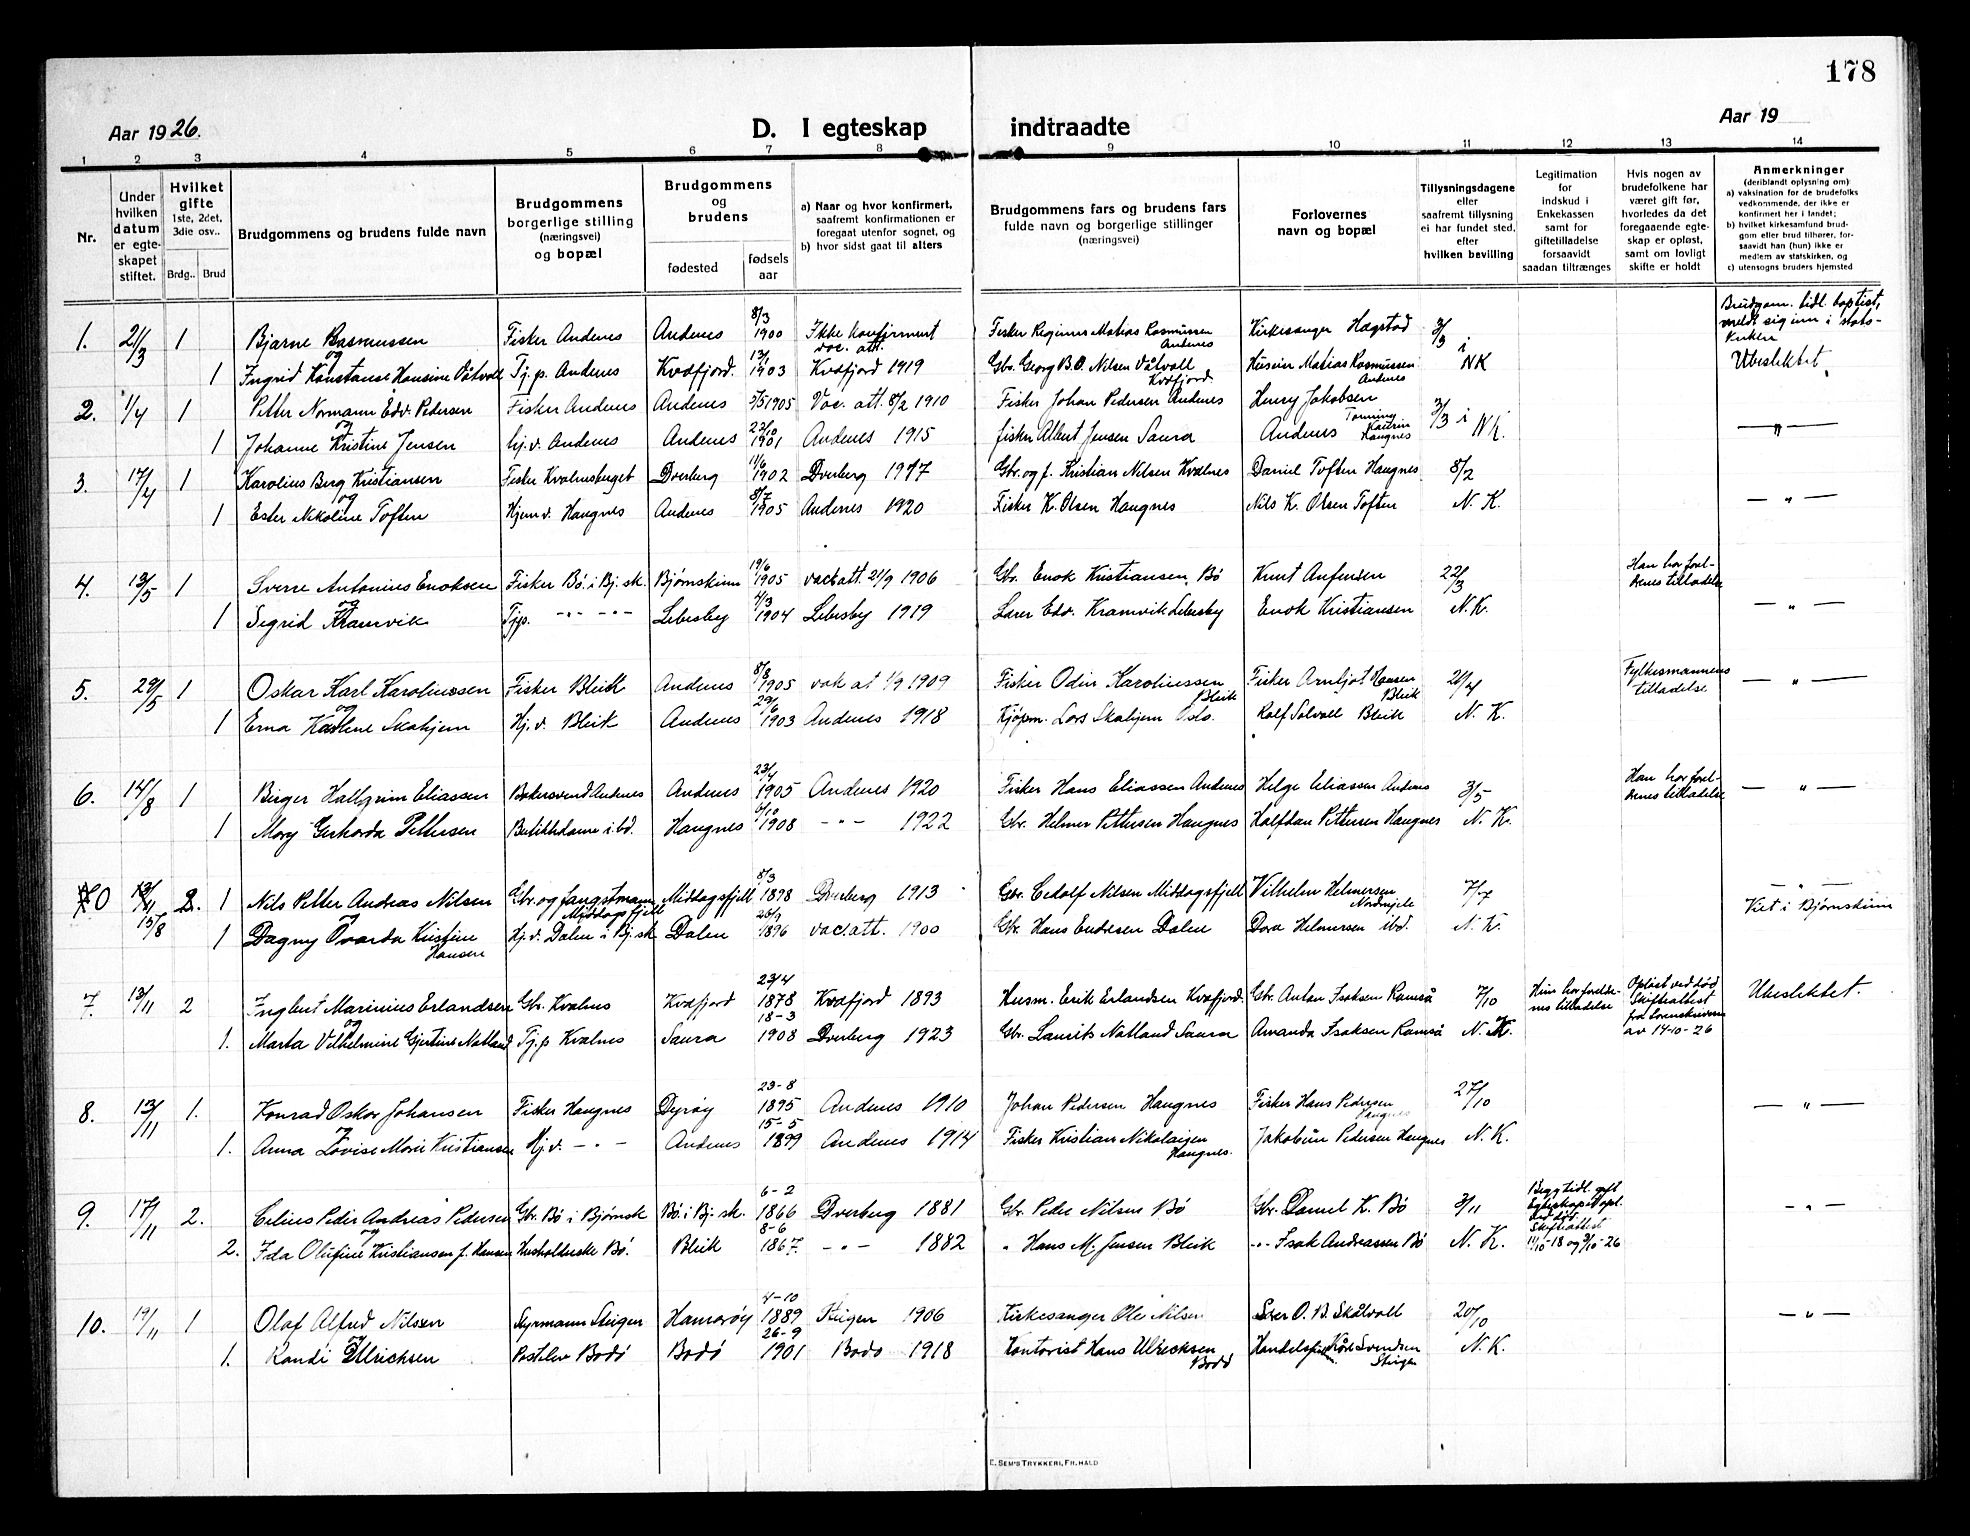 178
Aar 1926.
D. I egteskap indtraadte
Aar 19
1 2 3 4 5 6 7 8 9 10 11 12 13 14
Nr.
Under hvilken datum er egteskapet stiftet.
Hvilket gifte 1ste, 2det, 3die osv..
Brdg.. Brud
Brudgommens og brudens fulde navn
Brudgommens borgerlige stilling (næringsvei) og bopæl
Brudgommens og brudens
fødested
fødsels aar
a) Naar og hvor konfirmert, saafremt konfirmationen er foregaat utenfor sognet, og
b) hvor sidst gaat til alters
Brudgommens fars og brudens fars fulde navn og borgerlige stillinger (næringsvei)
Forlovernes navn og bopæl
Tillysningsdagene eller saafremt tillysning ei har fundet sted, efter hvilken bevilling
Legitimation for indskud i Enkekassen samt for giftetilladelse forsaavidt saadan tiltrænges
Hvis nogen av brudefolkene har været gift før, hvorledes da det foregaaende egteskap er opløst, samt om lovligt skifte er holdt
Anmerkninger (deriblandt oplysning om)
a) vaksination for de brudefolks vedkommende, der ikke er konfirmert her i landet;
b) hvilket kirkesamfund brudgom eller brud tilhører, forsaavidt han (hun) ikke er medlem av statskirken, og
c) utensogns bruders hjemsted
1. 21/3 1 Bjarne Rasmussen Fisker Andenes Andenes 8/3 1900 Ikke konfirmert vac. att. Fisker Reginus Matias Rasmussen Andenes Kirkesanger Hagstad 3/3 i Brudgom. tidl. baptist, meldt sig inn i statskirken
og
1 Ingrid Konstanse Hansine Våtvoll Tj. p. Andenes Kvæfjord. 13/1 1903 Kvæfjord 1919 Gbr. Georg B.O. Nilsen Våtvoll Kvæfjord Matias Rasmussen Andenes NK Ubeslektet.
2. 1/4 1 Petter Normann Edv. Pedersen Fisker Andenes Andenes 5/5 1905 Vac. att. 8/2 1910 Fisker Johan Pedersen Andenes Henry Jakobsen 3/3 i
og
1 Johanne Kristine Jensen hj. v. Andenes Andenes 22/10 1901 Andenes 1915 fisker Albert Jensen Saura Andenes Haugnes NK. — " —
3. 17/4 1 Karolius Berg Kristiansen Fisker Kvalnesberget Dverberg 11/6 1902 Dverberg 1917 Gbr. og f. Kristian Nilsen Kvalnes Daniel Toften Haugnes 8/2
og
1 Ester Nikoline Toften Hjem v. Haugnes Andenes 8/7 1905 Andenes 1920 Fisker K. Olsen Haugnes Nils K. Olsen Toften N. K. — " —
4. 13/5 1 Sverre Antonius Enoksen Fisker Bø i Bj. sk. Bjørnskinn 19/6 1905 vac. att. 21/9 1906 Gbr. Enok Kristiansen, Bø Knut Anfensen 22/3 Han har foreldrenes tilladelse
og
1 Sigrid Kramvik Tjp. -"- -"- Lebesby 4/3 1904 Lebesby 1919 Lærer Edv. Kramvik Lebesby Enok Kristiansen N. K. — " —
5. 29/5 1 Oskar Karl Karoliussen Fisker Bleik Andenes 8/8 1905 vak at 1/9 1909 Fisker Odin Karoliussen Bleik Fisker Arnljot Hansen Bleik 21/4 Fylkesmannens tilladelse — " —
og
1 Erna Karline Skahjem Hj. v. Bleik Andenes 29/6 1903 Andenes 1918 Kjøpm. Lars Skahjem Oslo. Rolf Solvoll Bleik N. K.
6. 14/8 1 Birger Hallgrim Eliassen Bakersvend Andenes Andenes 23/4 1905 Andenes 1920 Fisker Hans Eliassen Andenes Helge Eliassen Andenes 3/5 Han har foreldrenes tilladelse — " —
1 Mary Gerharda Pettersen Butikkdame ibd. Haugnes 6/10 1908 — " — 1922 Gbr. Helmer Pettersen Haugnes Halfdan Pettersen Haugnes N. K.
0 15/8 1 Nils Petter Andreas Nilsen Gbr. og fangstmann Middagsfjell Middagsfjell 8/3 1898 Dverberg 1913 Gbr. Edolf Nilsen Middagsfjell Vilhelm Helmersen Nordmjele 7/7 — " —
og
1 Dagny Ovarda Kristine Hansen Hj. v. Dalen i Bj. sk Dalen 1896 vac. att. 1900 Gbr. Hans Endresen Dalen Dora Helmersen ibd. N. K. Viet i Bjørnskinn
7. 13/11 2 Ingbert Marinius Erlandsen Gbr. Kvalnes Kvæfjord 23/4 1878 Kvæfjord 1893 Husm. Erik Erlandsen Kvæfjord. Gbr. Anton Isaksen Ramså 7/10 Hun har foreldrenes tilladelse Opløst ved død Skifteattest fra Sorenskriveren av 14-10-26 Ubeslektet.
og
1. Marta Vilhelmine Gjertine Natland Tj. p Kvalnes Saura 18-3 1908 Dverberg 1923 Gbr. Laurits Natland Saura Amanda Isaksen Ramså N. K.
8. 13/11 1. Konrad Oskar Johansen Fisker Haugnes Dyrøy 23-8 1895 Andenes 1910 Johan Pedersen Haugnes Fisker Hans Pedersen Haugnes 27/10 — " —
og
1. Anna Lovise Marie Kristiansen Hj. v. — " — Andenes 15-5 1899 Andenes 1914 Fisker Kristian Nikolaisen Haugnes. Jakobine Pedersen Haugnes N. K.
9. 17/11 2. Celius Peder Andreas Pedersen Gbr. Bø i Bjørnsk Bø i Bj. sk. 6-2 1866 Dverberg 1881 Gbr. Peder Nilsen Bø Gbr. Daniel K. Bø 3/11 Begg tidl. gift Egteskapet opl. ved død. Skifteattest 11/10-18 og 3/10-26 — " —
og
2. Ida Olufine Kristiansen f. Hansen Husholderske Bø. Bleik 8-6 1867. — " — 1882 " Hans M. Jensen Bleik -"- Isak Andreassen Bø N. K.
10. 19/11 1 Olaf Alfred Nilsen Styrmann Steigen Hamarøy 4-10 1889 Steigen 1906 Kirkesanger Ole Nilsen Lærer O. B. Skålvoll 20/10 — " —
og
1. Randi Ulricksen Postelev Bodø Bodø 26-9 1901 Bodø 1918 Kontorist Hans Ulricksen Bodø Handelsfullm. Kåre Svendsen Steigen N. K.
E. SEM'S TRYKKERI, FR.HALD